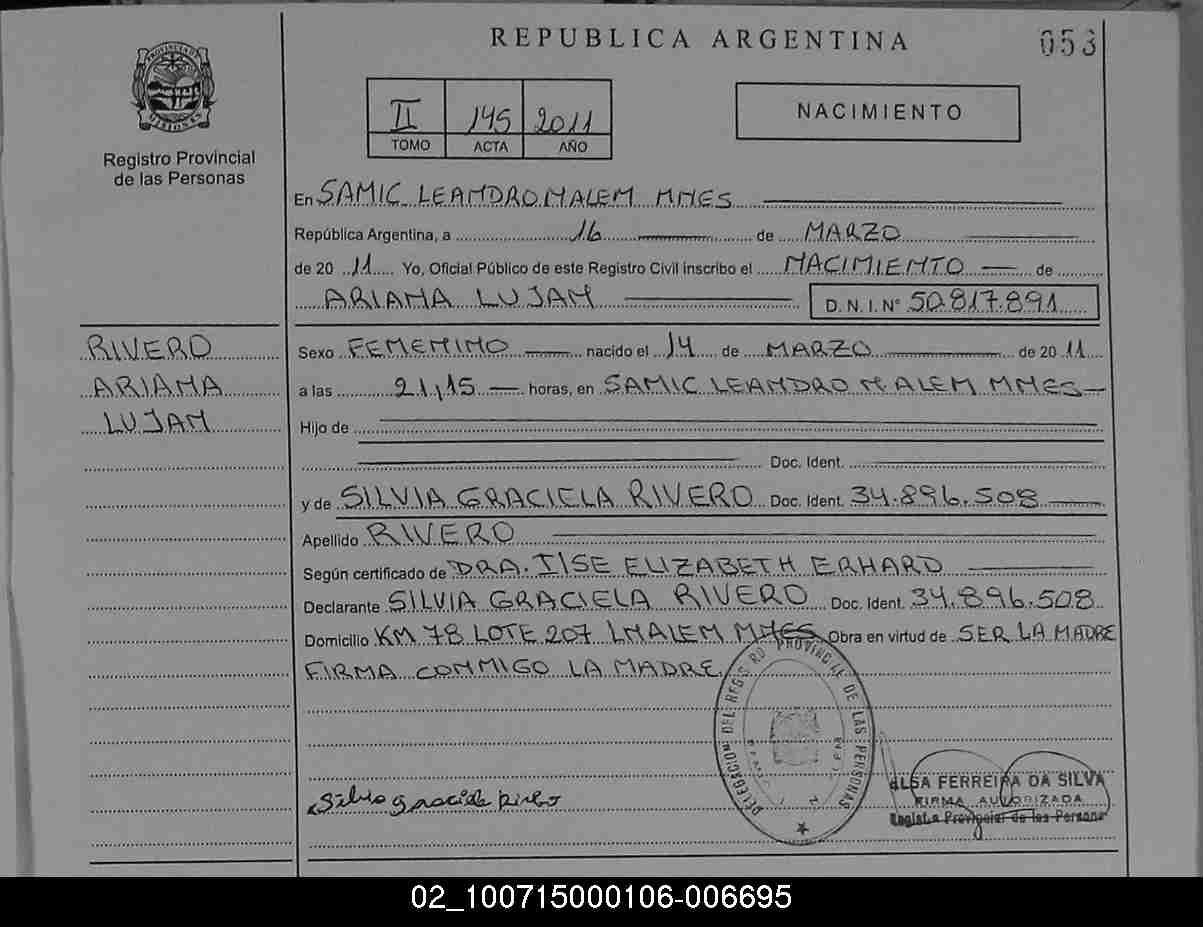 REPUBLICA ARGENTINA
053
PROVINCIA DE
MISIONES
Registro Provincial
de las Personas
II 145 2011
TOMO ACTA AÑO
NACIMIENTO
En SAMIC LEANDRO N ALEM MNES
República Argentina, a 16 de MARZO
de 20 11 Yo, Oficial Público de este Registro Civil inscribo el NACIMIENTO de
ARIANA LUJAN D. N. I. N° 50.817.891
RIVERO
ARIANA
LUJAN
Sexo FEMENINO nacido el 14 de MARZO de 20 11
a las 21,15 horas, en SAMIC LEANDRO N. ALEM MNES
Hijo de
Doc. Ident.
y de SILVIA GRACIELA RIVERO Doc. Ident. 34.896.508
Apellido RIVERO
Según certificado de DRA. ILSE ELIZABETH ERHARD
Declarante SILVIA GRACIELA RIVERO Doc. Ident. 34.896.508
Domicilio KM 78 LOTE 207 LNALEM MNES Obra en virtud de SER LA MADRE
FIRMA CONMIGO LA MADRE
DELEGACION DEL REGISRO PROVINCIAL DE LAS PERSONAS
Silvia Graciela Rivero
ELSA FERREIRA DA SILVA
FIRMA AUTORIZADA
Registro Provincial de las Personas
02_100715000106-006695